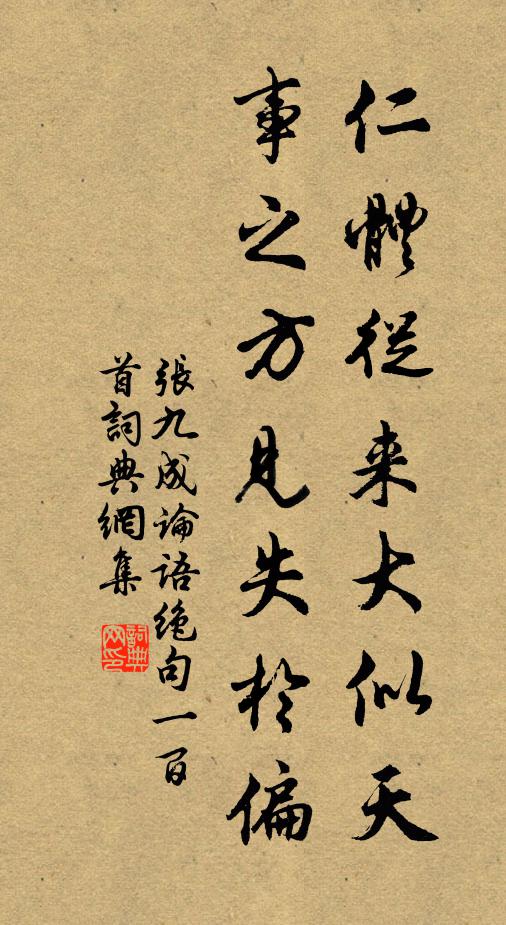 仁體從来大似天
事之方見失於偏
張九成論語绝句一百
首詞典網集
詞典网印